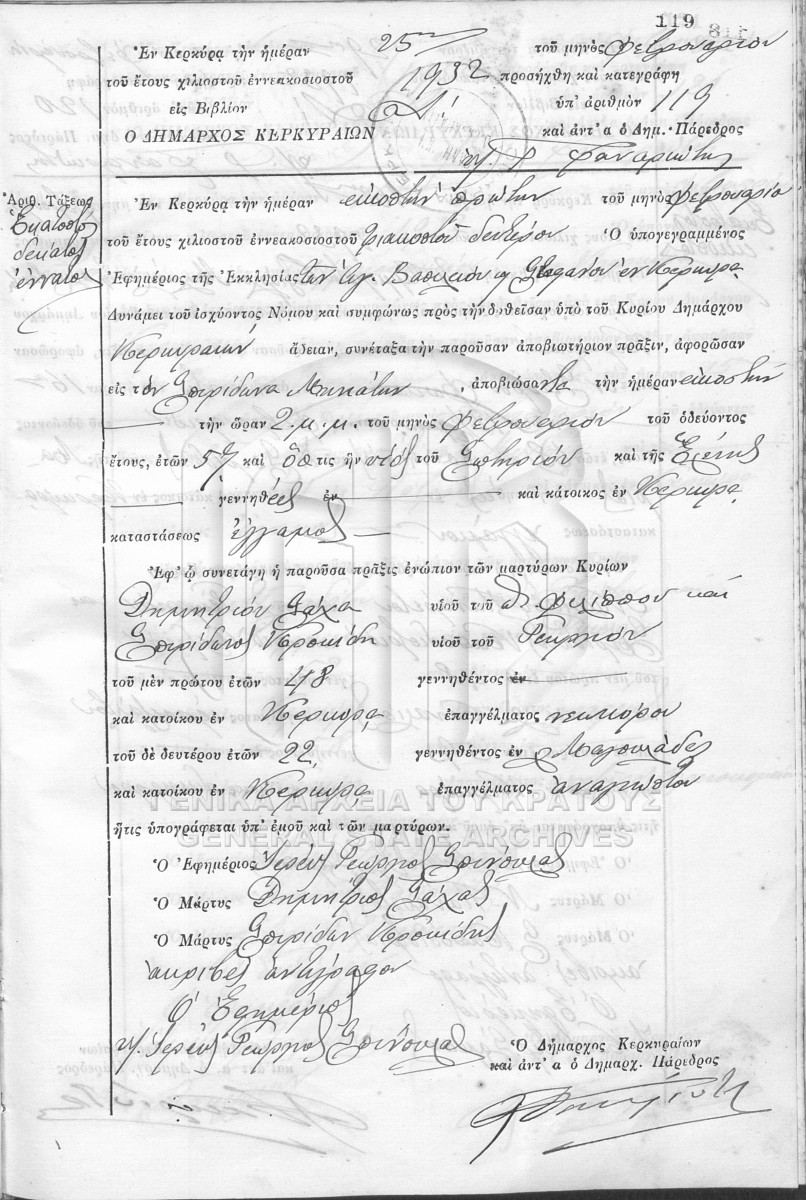 119
Ἐν Κερκύρᾳ τὴν ἡμέραν 25ην τοῦ μηνὸς Φεβρουαρίου
τοῦ ἔτους χιλιοστοῦ ἐννεακοσιοστοῦ 1932 προσήχθη καὶ κατεγράφη
εἰς Βιβλίον Α' ὑπ' ἀριθμὸν 119
Ο ΔΗΜΑΡΧΟΣ ΚΕΡΚΥΡΑΙΩΝ καὶ ἀντ' α ὁ Δημ. Πάρεδρος
Φαναριώτης
Ἀριθ. Τάξεως
Ἑκατοστὸς
δέκατος
ἔννατος
Ἐν Κερκύρᾳ τὴν ἡμέραν εἰκοστὴν πρώτην τοῦ μηνὸς Φεβρουαρίου
τοῦ ἔτους χιλιοστοῦ ἐννεακοσιοστοῦ τριακοστοῦ δευτέρου Ὁ ὑπογεγραμμένος
Ἐφημέριος τῆς Ἐκκλησίας τῶν Ἁγ. Βασιλείου ϗ Στεφάνου ἐν Κερκύρᾳ
Δυνάμει τοῦ ἰσχύοντος Νόμου καὶ συμφώνως πρὸς τὴν δοθεῖσαν ὑπὸ τοῦ Κυρίου Δημάρχου
Κερκυραίων ἄδειαν, συνέταξα τὴν παροῦσαν ἀποβιωτήριον πρᾶξιν, ἀφορῶσαν
εἰς τὸν Σπυρίδωνα, ἀποβιώσαντα τὴν ἡμέραν εἰκοστὴν
τὴν ὥραν 2. μ.μ. τοῦ μηνὸς Φεβρουαρίου τοῦ ὁδεύοντος
ἔτους, ἐτῶν 57 καὶ ὅστις ἦν υἱὸς τοῦ Σωτηρίου καὶ τῆς Ἑλένης
γεννηθεὶς ἐν καὶ κάτοικος ἐν Κερκύρᾳ
καταστάσεως ἔγγαμος
Ἐφ' ᾧ συνετάγη ἡ παροῦσα πρᾶξις ἐνώπιον τῶν μαρτύρων Κυρίων
Δημητρίου Σάχα υἱοῦ τοῦ Φιλίππου καὶ
Σπυρίδωνος υἱοῦ τοῦ Γεωργίου
τοῦ μὲν πρώτου ἐτῶν 48 γεννηθέντος ἐν
καὶ κατοίκου ἐν Κερκύρᾳ ἐπαγγέλματος νεωκόρου
τοῦ δὲ δευτέρου ἐτῶν 22 γεννηθέντος ἐν
καὶ κατοίκου ἐν Κερκύρᾳ ἐπαγγέλματος ἀναγνώστου
ΓΕΝΙΚΑ ΑΡΧΕΙΑ ΤΟΥ ΚΡΑΤΟΥΣ
ἥτις ὑπογράφεται ὑπ' ἐμοῦ καὶ τῶν μαρτύρων.
GENERAL STATE ARCHIVES
Ὁ Ἐφημέριος Ἱερεὺς Γεώργιος Σπινούλας
Ὁ Μάρτυς Δημήτριος Σάχας
Ὁ Μάρτυς Σπυρίδων
ἀκριβὲς ἀντίγραφον
Ὁ Ἐφημέριος
Ἱερεὺς Γεώργιος Σπινούλας
Ὁ Δήμαρχος Κερκυραίων
καὶ ἀντ' α ὁ Δημαρχ. Πάρεδρος